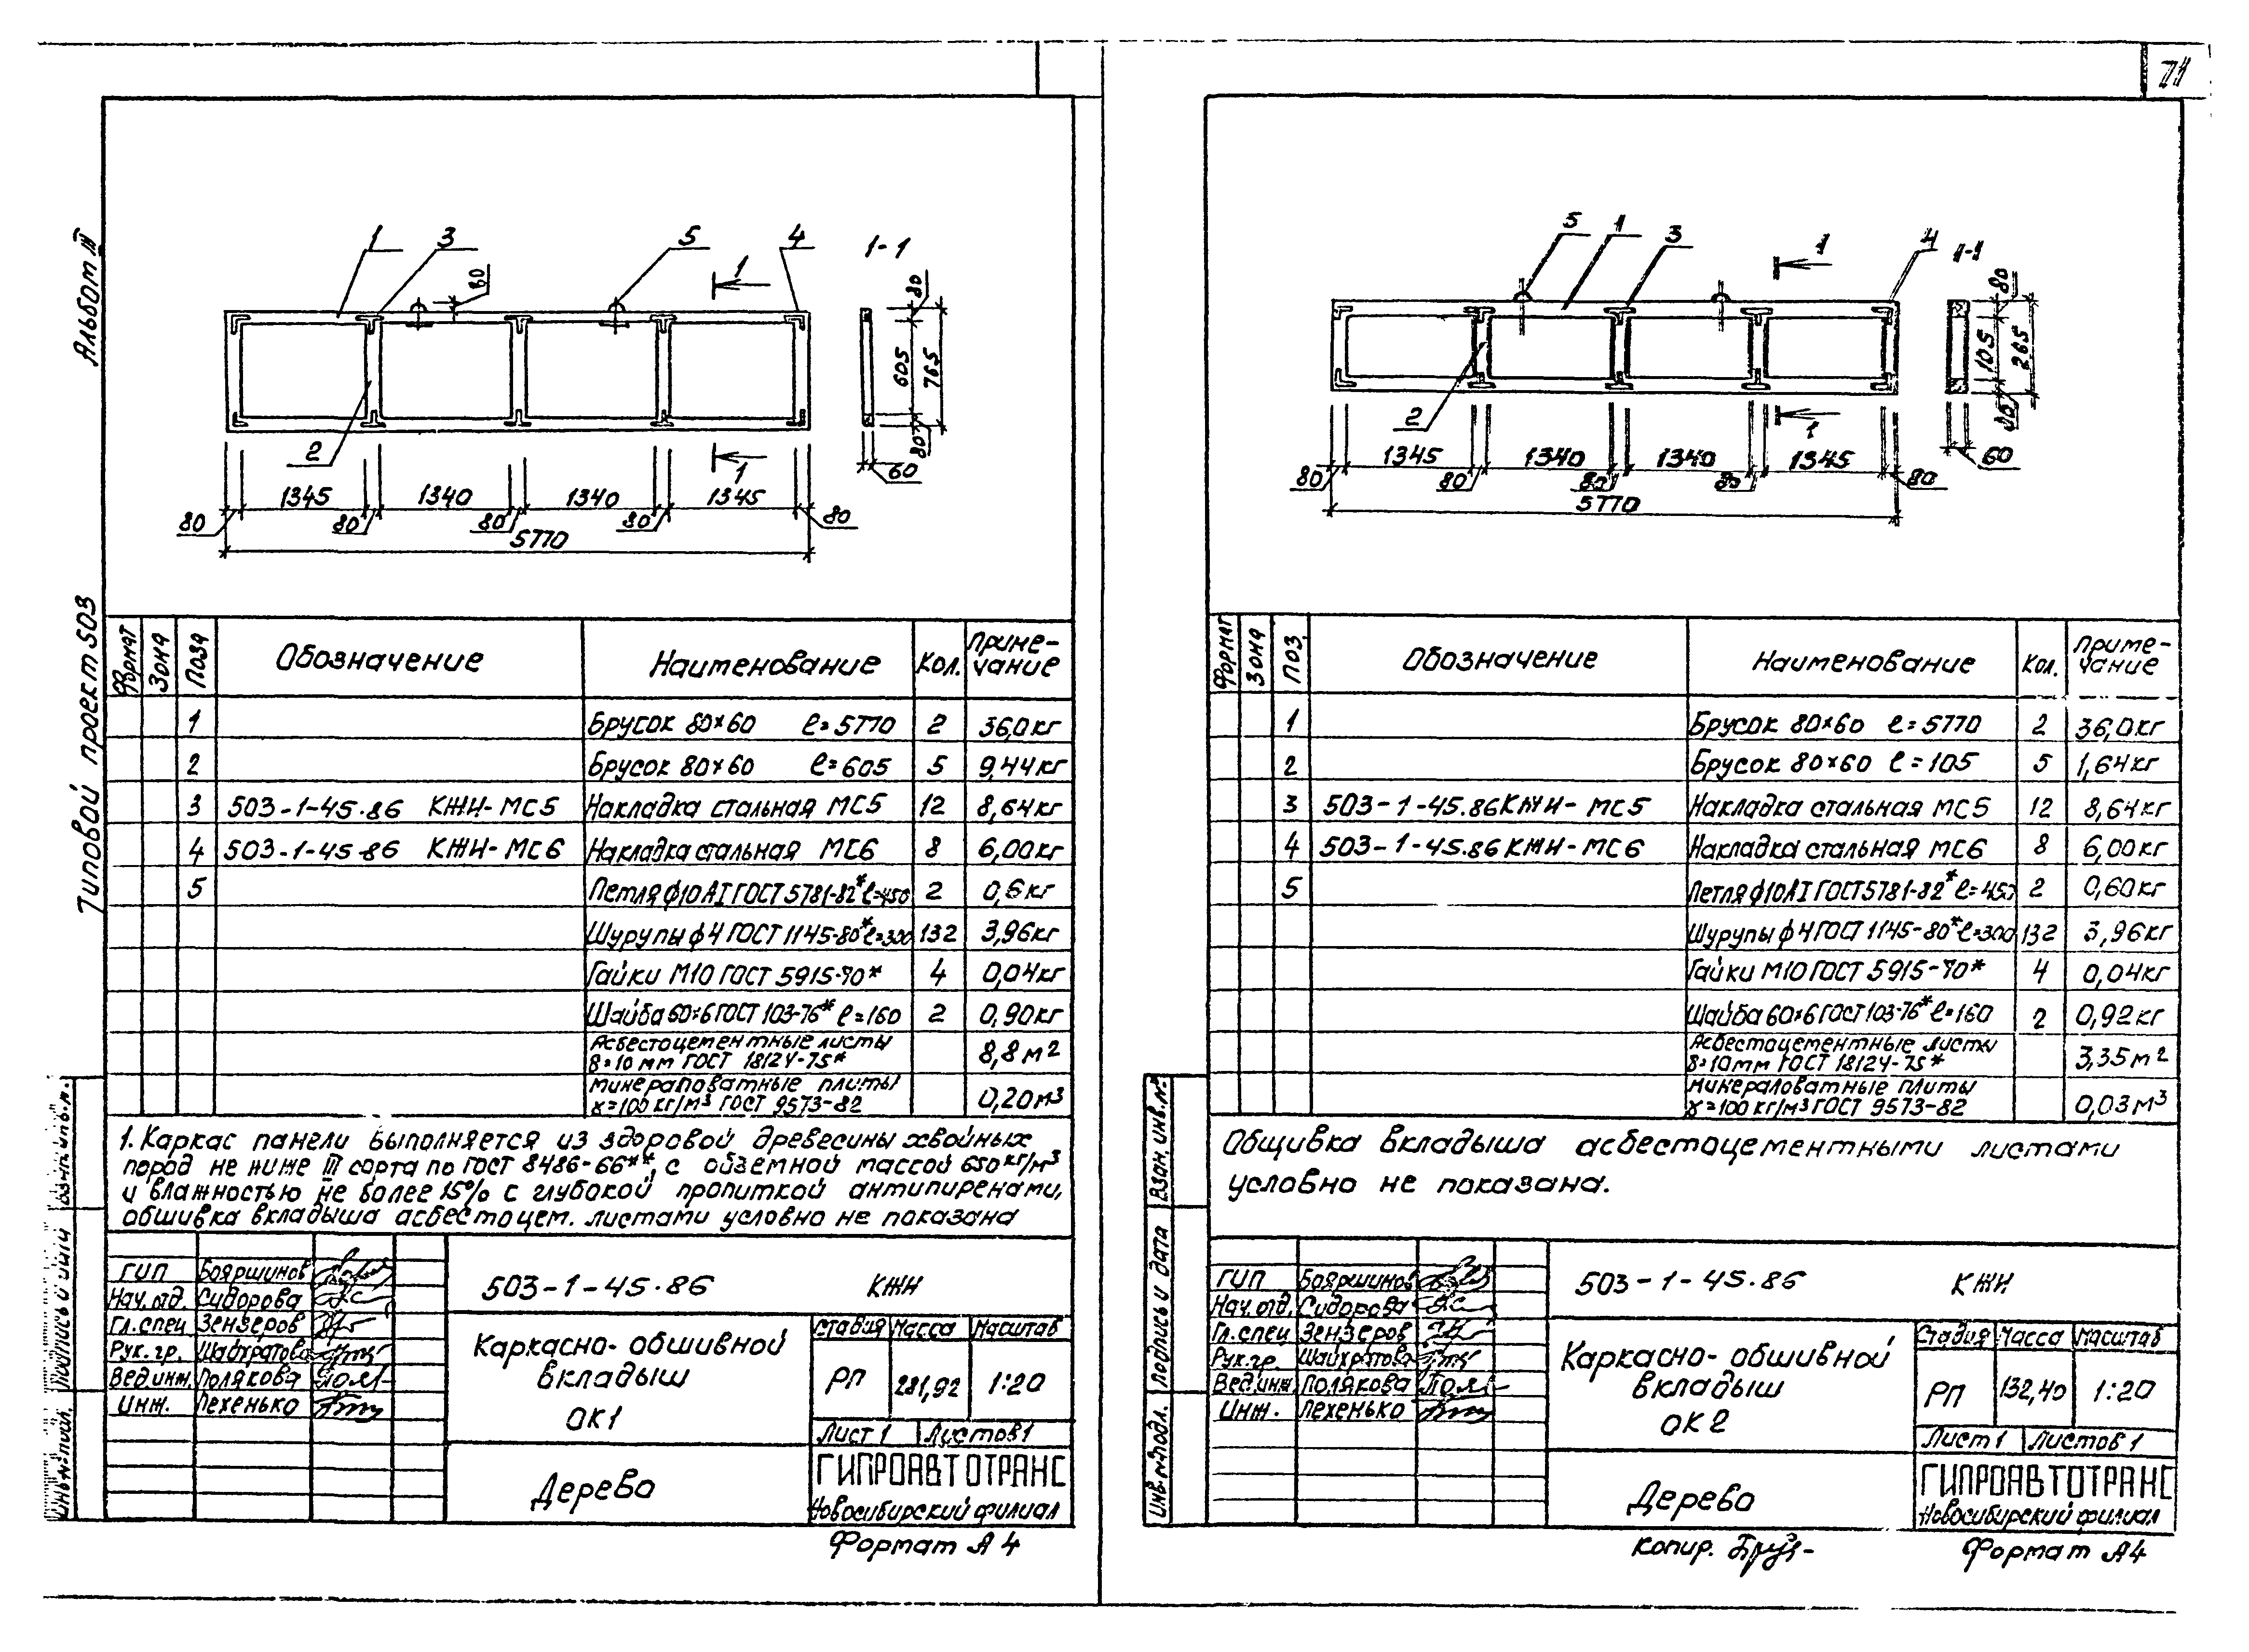 71
Альбом III
Типовой проект 503
1 3 5 4 1-1
80 1
2 1
80 605 765 80 60
1345 1340 1340 1345
80 80 80 80 80
5770
Формат Зона Поз. Обозначение Наименование Кол. Приме-
чание
1 Брусок 80×60 ℓ=5770 2 36,0кг
2 Брусок 80×60 ℓ=605 5 9,44кг
3 503-1-45.86 КЖИ-МС5 Накладка стальная МС5 12 8,64кг
4 503-1-45-86 КЖИ-МС6 Накладка стальная МС6 8 6,00кг
5 Петля ф10АI ГОСТ 5781-82* ℓ=450 2 0,6кг
Шурупы ф4 ГОСТ 1145-80* ℓ=300 132 3,96кг
Гайки М10 ГОСТ 5915-70* 4 0,04кг
Шайба 60×6 ГОСТ 103-76* ℓ=160 2 0,90кг
Асбестоцементные листы
δ=10мм ГОСТ 18124-75* 8,8м²
минераловатные плиты
γ=100кг/м³ ГОСТ 9573-82 0,20м³
1. Каркас панели выполняется из здоровой древесины хвойных
пород не ниже III сорта по ГОСТ 8486-66**, с объемной массой 650кг/м³
и влажностью не более 15% с глубокой пропиткой антипиренами,
обшивка вкладыша асбестоцем. листами условно не показана
ГИП Бояршинов
Нач.отд. Сидорова
Гл.спец Зензеров
Рук.гр. Шайхратова
Вед.инж. Полякова
Инж. Пехенько
503-1-45.86 КЖИ
Каркасно-обшивной
вкладыш
ОК1
Стадия Масса Масштаб
РП 281,92 1:20
Лист 1 Листов 1
Дерево
ГИПРОАВТОТРАНС
Новосибирский филиал
Формат А4
5 1 3 1 4 1-1
2 1
80 105 265 80 60
1345 1340 1340 1345
80 80 80 80 80
5770
Формат Зона Поз. Обозначение Наименование Кол. Приме-
чание
1 Брусок 80×60 ℓ=5770 2 36,0кг
2 Брусок 80×60 ℓ=105 5 1,64кг
3 503-1-45.86 КЖИ-МС5 Накладка стальная МС5 12 8,64кг
4 503-1-45.86 КЖИ-МС6 Накладка стальная МС6 8 6,00кг
5 Петля ф10АI ГОСТ 5781-82* ℓ=450 2 0,60кг
Шурупы ф4 ГОСТ 1145-80* ℓ=300 132 3,96кг
Гайки М10 ГОСТ 5915-70* 4 0,04кг
Шайба 60×6 ГОСТ 103-76* ℓ=160 2 0,92кг
Асбестоцементные листы
δ=10мм ГОСТ 18124-75* 3,35м²
минераловатные плиты
γ=100кг/м³ ГОСТ 9573-82 0,03м³
Общивка вкладыша асбестоцементными листами
условно не показана.
Взан, инв.№
Подпись и дата
Инв.№ подл.
ГИП Бояршинов
Нач.отд. Сидорова
Гл.спец Зензеров
Рук.гр. Шайхратова
Вед.инж. Полякова
Инж. Пехенько
503-1-45.86 КЖИ
Каркасно-обшивной
вкладыш
ОК2
Стадия Масса Масштаб
РП 132,40 1:20
Лист 1 Листов 1
Дерево
ГИПРОАВТОТРАНС
Новосибирский филиал
копир. Формат А4